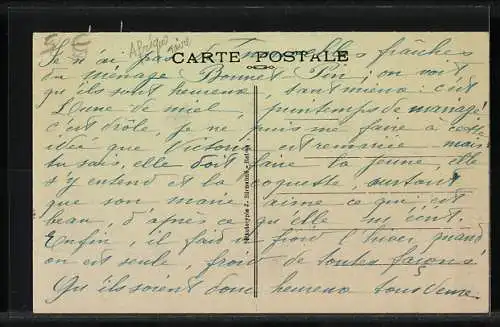 5 €
Afrique
noire
CARTE POSTALE
Je n'ai pas de nouvelles fraîches
du ménage Bonnet Pin ; on voit
qu'ils sont heureux, tant mieux : c'est
Lune de miel, printemps de mariage
c'est drôle, je ne puis me faire à cette
idée que Victoria est remariée mais
tu sais, elle doit faire la jeune, elle
s'y entend et la coquette, surtout
que son mari aime ce qui est
beau, d'après ce qu'elle m'écrit.
Enfin, il fait froid l'hiver quand
on est seule, froid de toutes façons
Qu'ils soient donc heureux tous deux.